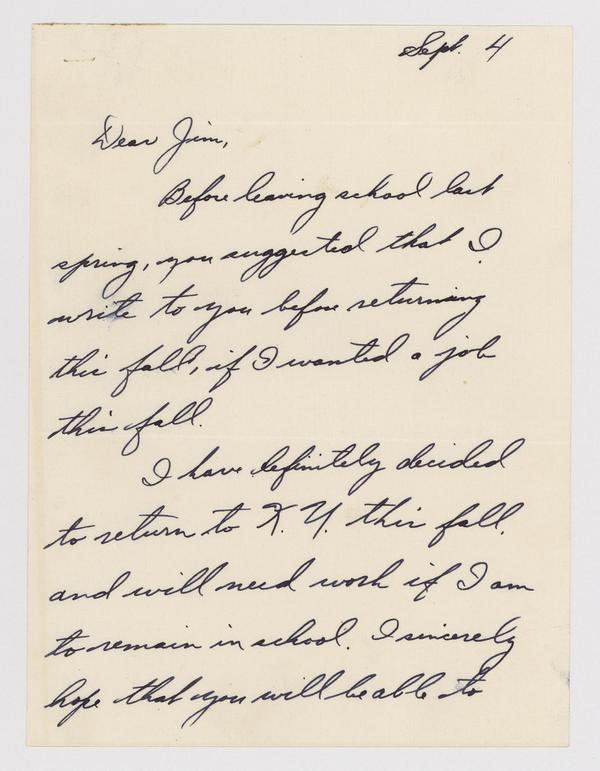 Sept. 4
Dear Jim,
Before leaving school last
spring, you suggested that I
write to you before returning
this fall, if I wanted a job
this fall.
I have definitely decided
to return to K. U. this fall.
and will need work if I am
to remain in school. I sincerely
hope that you will be able to